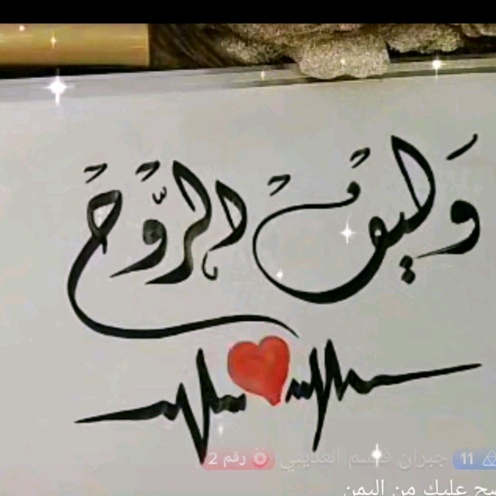 وَليف الرّوح
11 جبران قاسم العديني رقم 2
عليك من اليمن